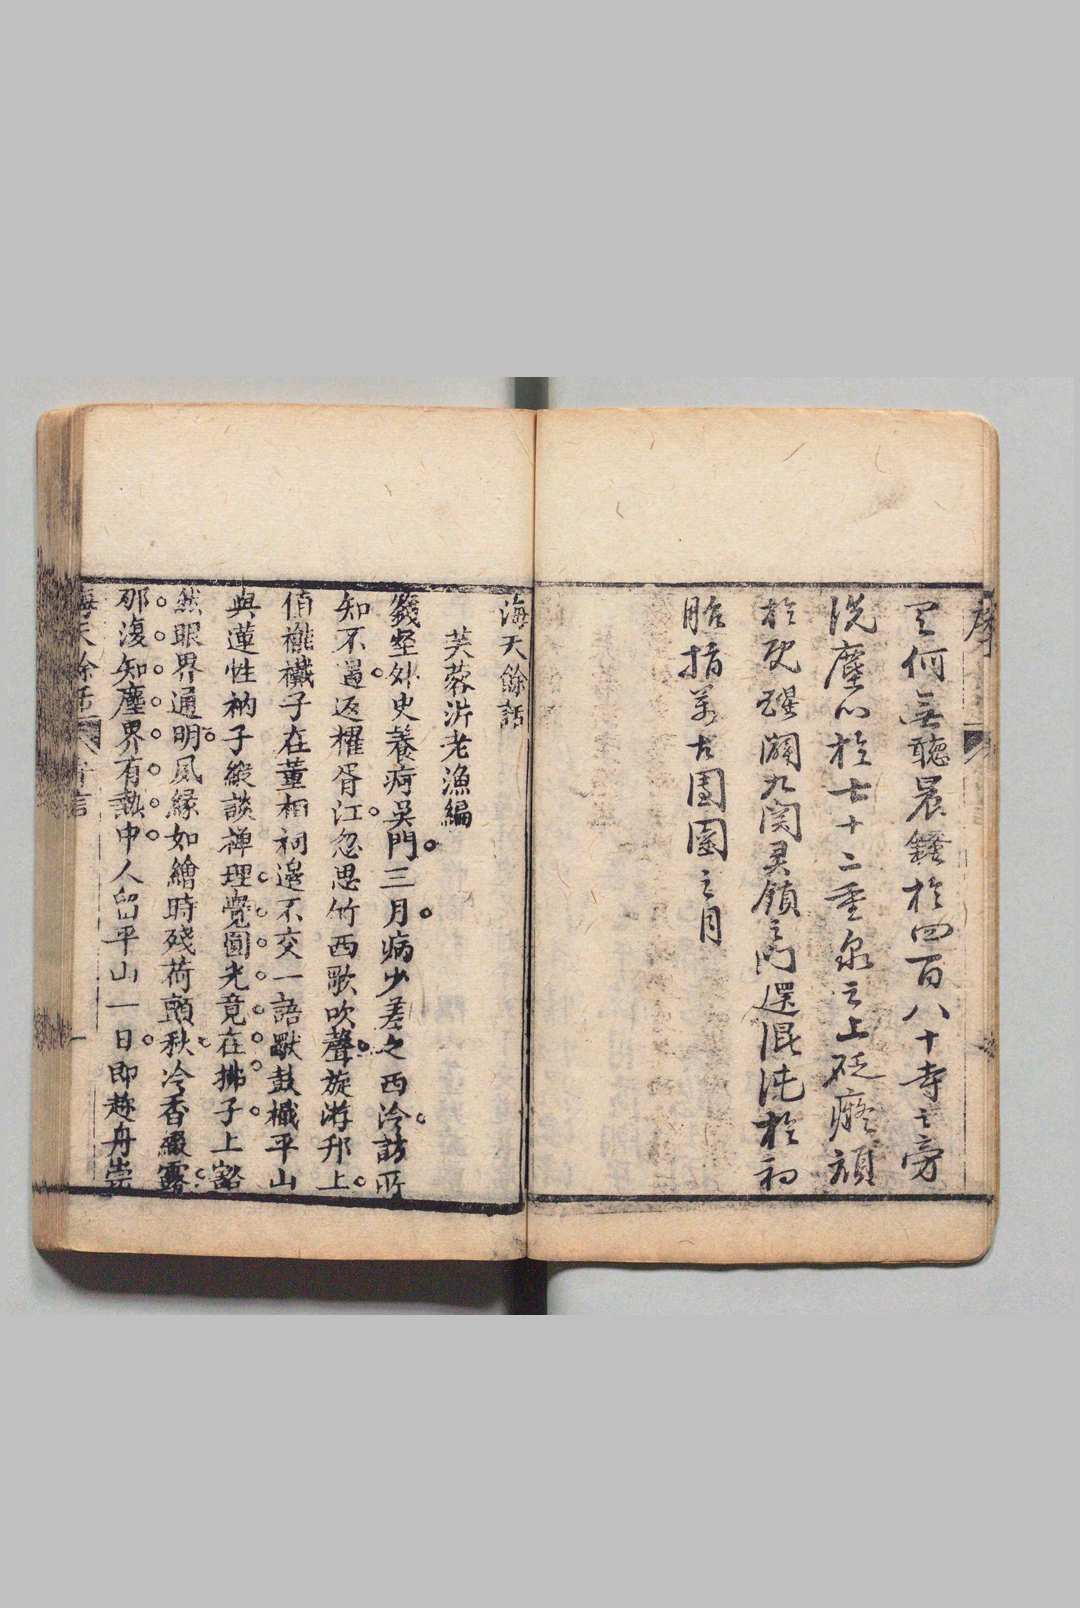 序
何無聽晨鐘於四百八十寺之旁
洗塵心於七十二重泉之上砭癡頑
於死醒闢九關灵領之門還混沌於初
胎指萬古團圞之月
海天餘話
芙蓉沜老漁編
錢塘外史養疴吳門三月病少差之西泠訪所
知不遇返櫂胥江忽思竹西歌吹聲旋游邗上
值襤襶子在董相祠邊不交一語歇鼓檥平山
與蓮性衲子縱談禪理覺圓光竟在拂子上豁
然眼界通明風緣如繪時殘荷顫秋冷香綴露
那復知塵界有熱中人留平山一日即趁舟崇
海天餘話 一